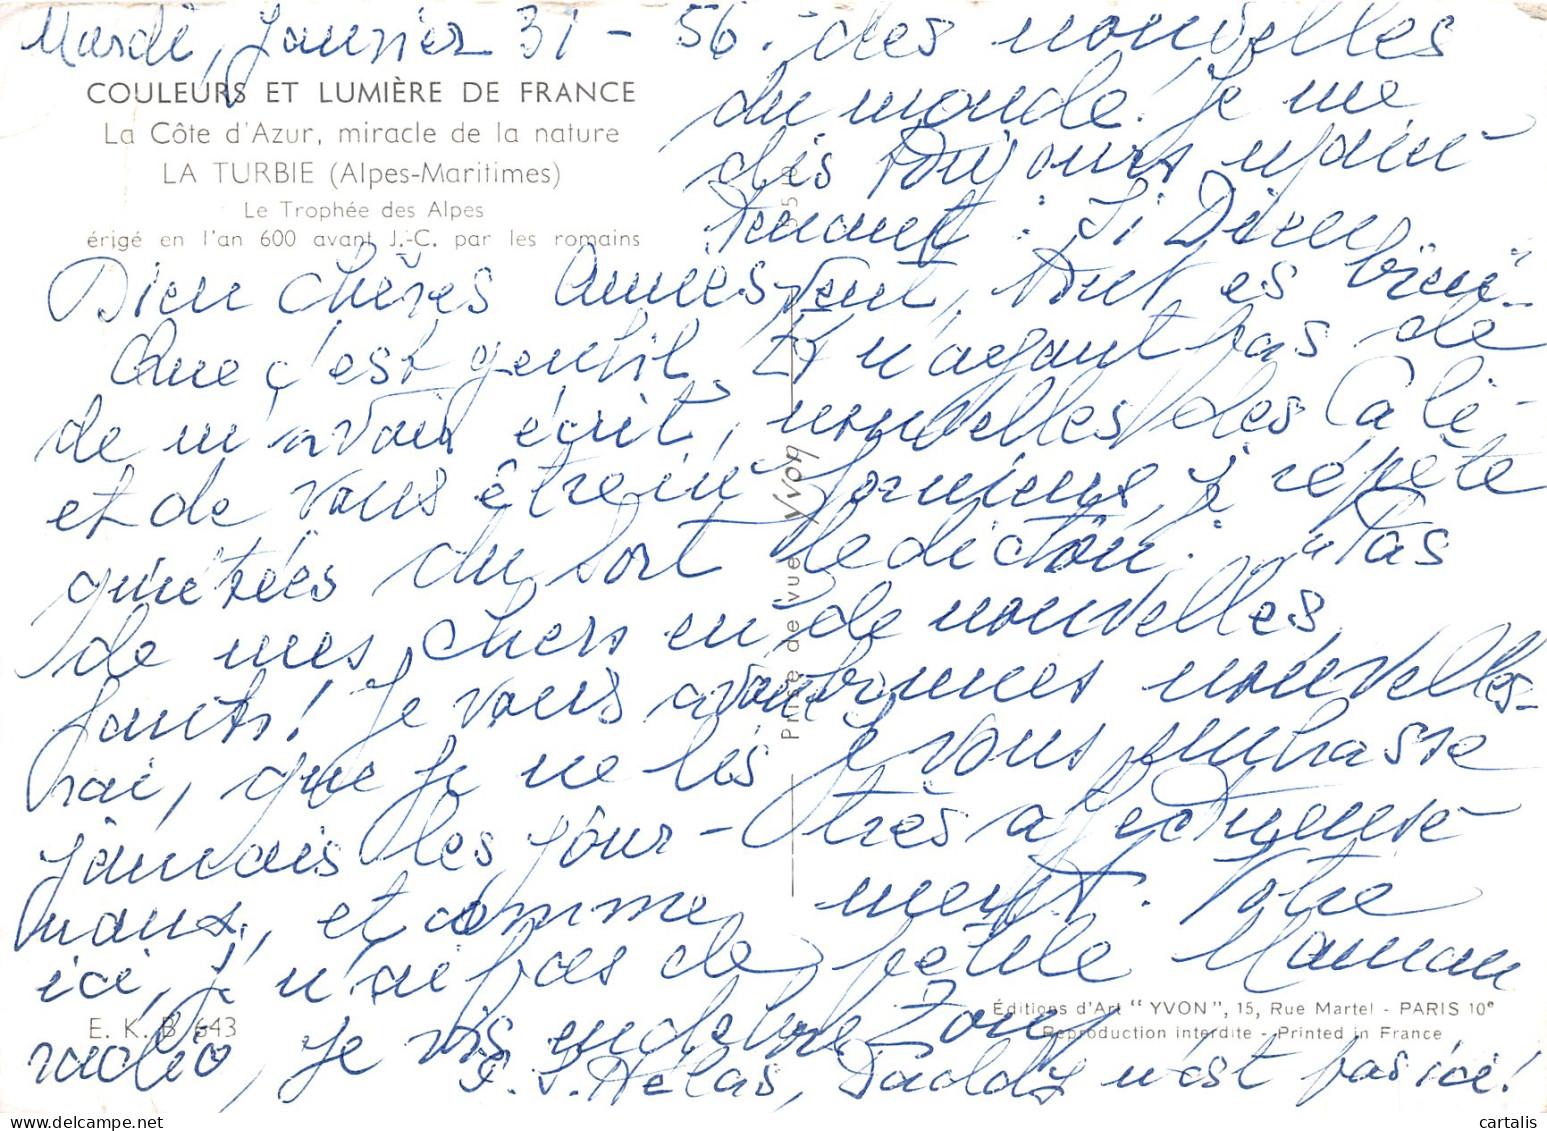 Mardi, Janvier 31 - 56.
COULEURS ET LUMIÈRE DE FRANCE
La Côte d'Azur, miracle de la nature
LA TURBIE (Alpes-Maritimes)
Le Trophée des Alpes
érigé en l'an 600 avant J.-C. par les romains
Bien chères Amies,
Que c'est gentil
de m'avoir écrit,
et de vous être in
quiétées du sort
de mes chers en
fants! Je vous avou
rai, que je ne lis
jamais les jour-
naux, et comme
ici, j'n'ai pas de
radio, je vis en dehors
des nouvelles
du monde! Je me
dis toujours main
tenant : Si Dieu
veut, tout es bien!
Et n'ayant pas de
nouvelles des Cali-
forniens, j' répète
le dicton: "Pas
de nouvelles,
bonnes nouvelles-
Je vous embrasse
très affectueuse
ment. Votre
petite Maman
Zouy
P.S. Hélas, Daddy n'est pas ici!
Prise de vue Yvon
E. K. B 643
Éditions d'Art "YVON", 15, Rue Martel - PARIS 10e
Reproduction interdite - Printed in France
cartalis